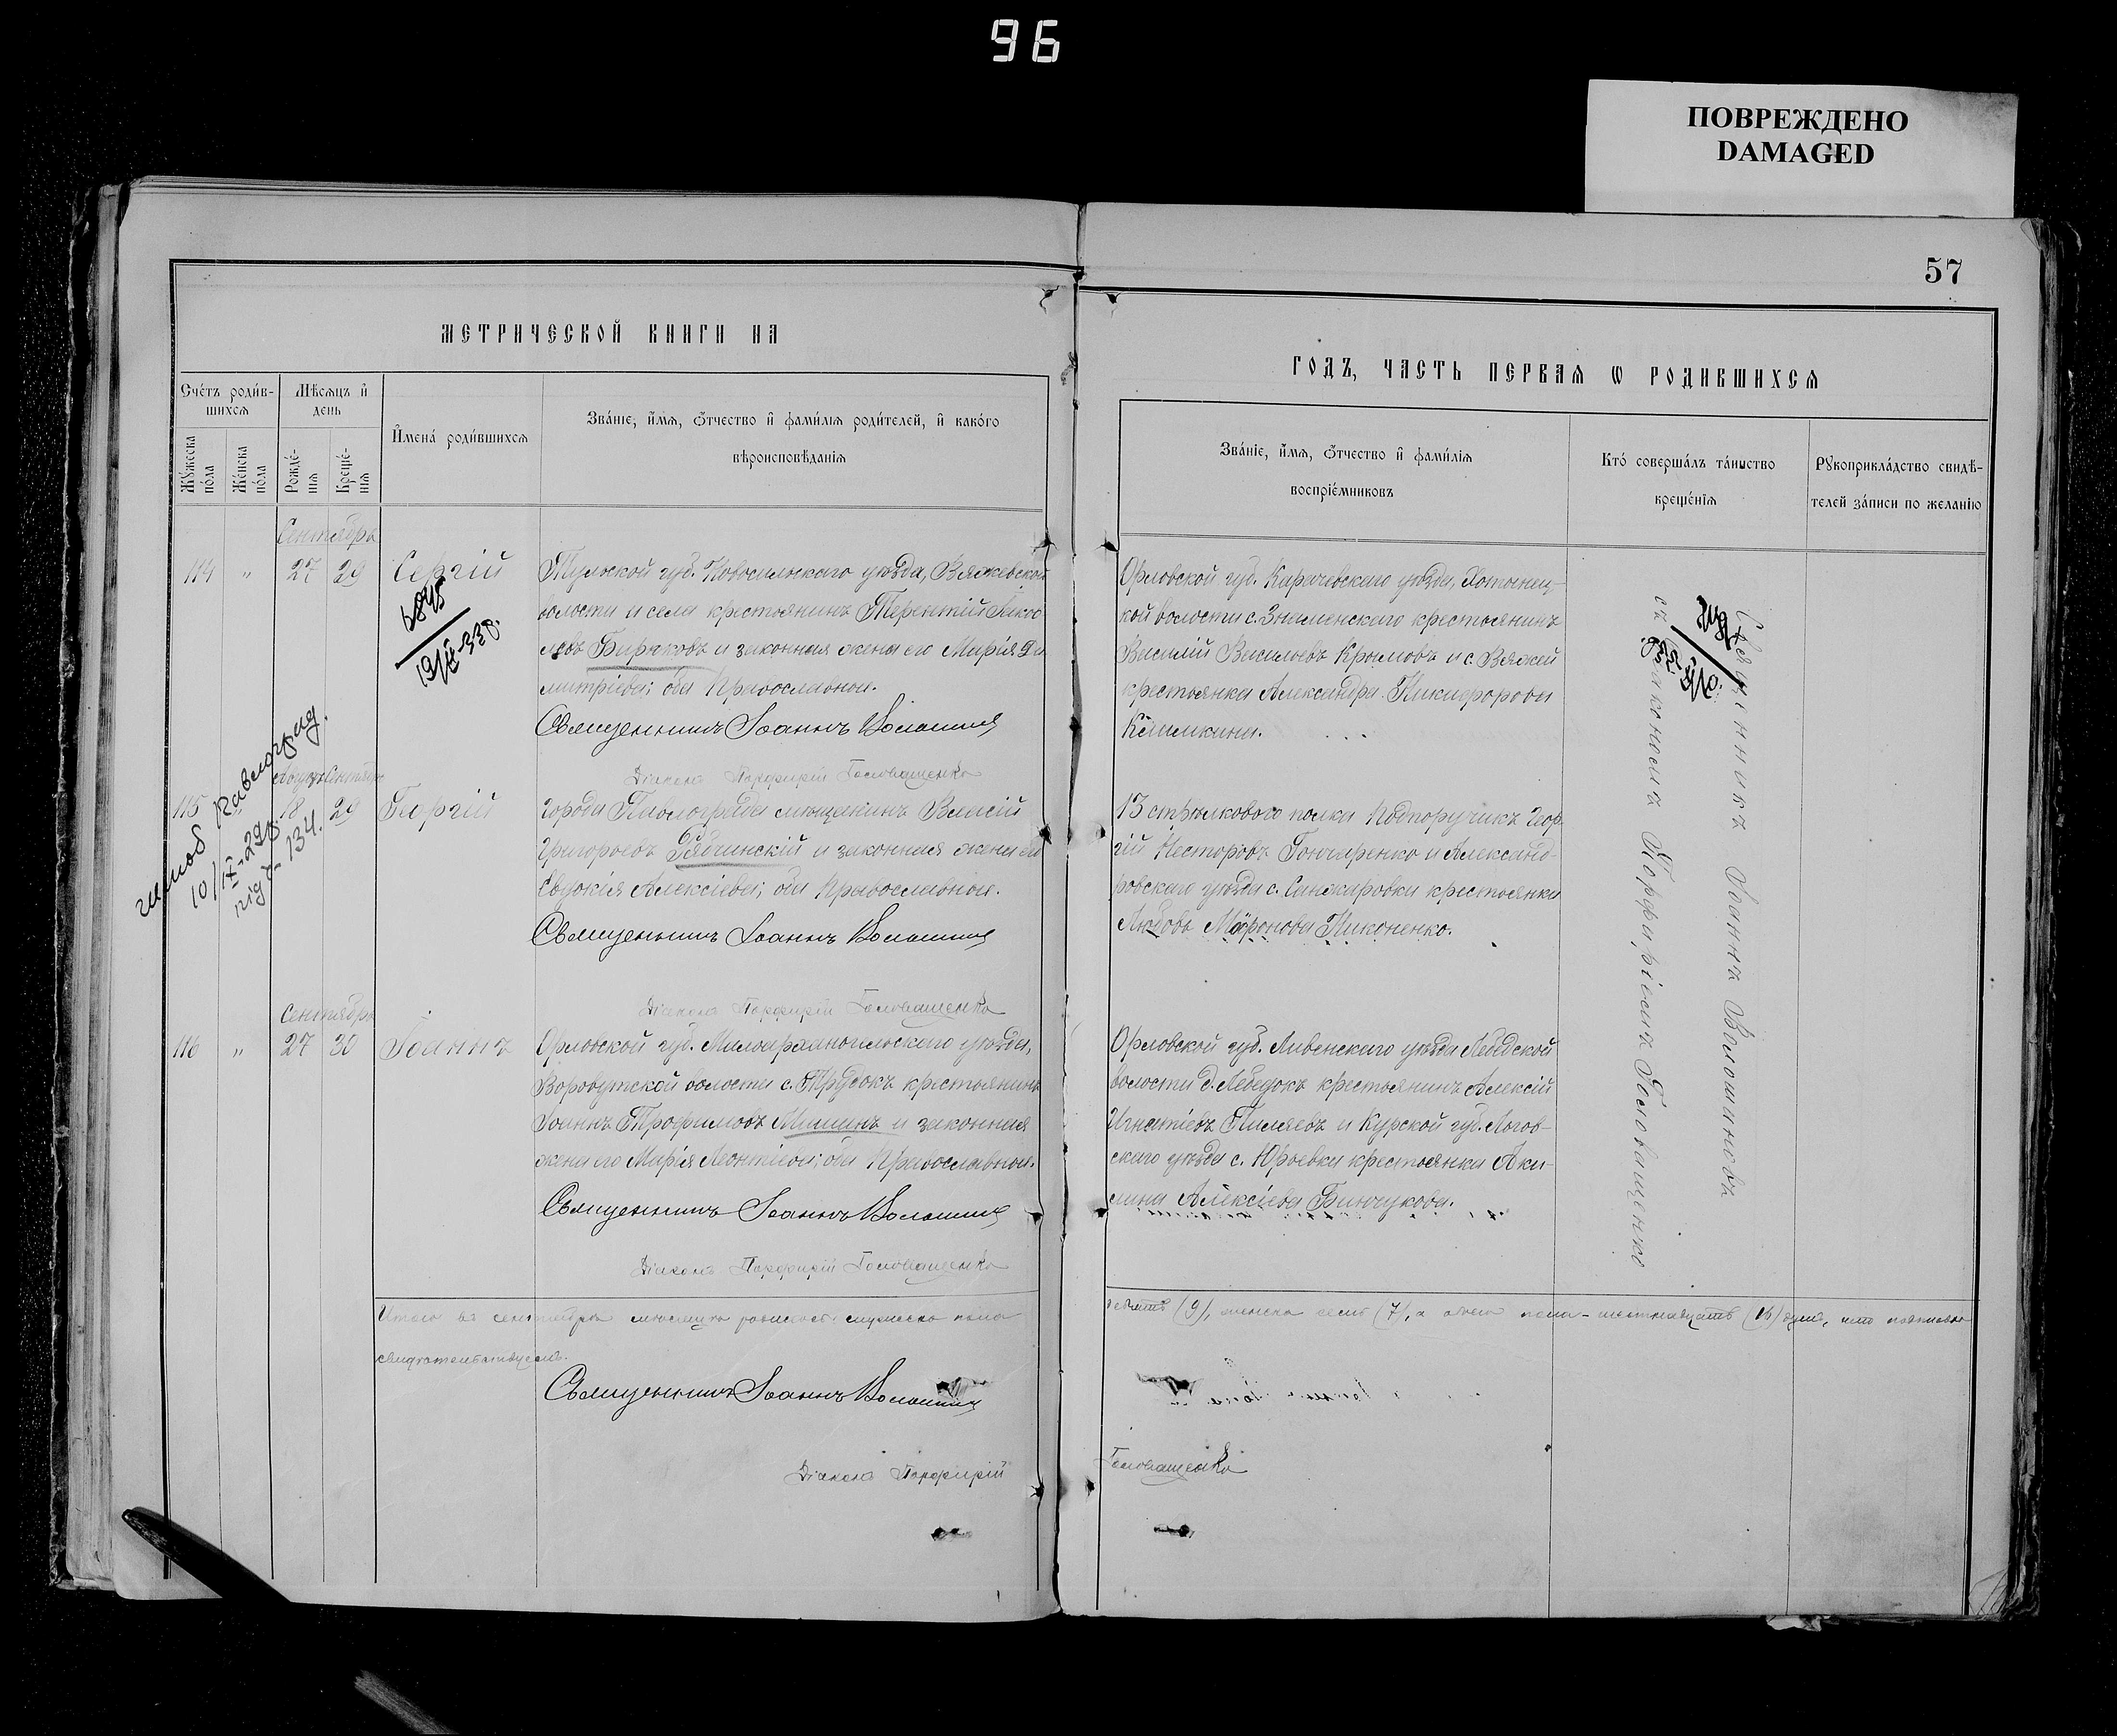 96
ПОВРЕЖДЕНО
DAMAGED
57
МЕТРИЧЕСКОЙ КНИГИ НА
ГОДЪ, ЧАСТЬ ПЕРВАЯ Ѡ РОДИВШИХСЯ
Счетъ родив-
шихся
Мѣсяцъ и
день
Мужеска
пола
Женска
пола
Рожде-
нія
Креще-
нія
Имена родившихся
Званіе, имя, отчество и фамилія родителей, и какого
вѣроисповѣданія
Званіе, имя, отчество и фамилія
воспріемниковъ
Кто совершалъ таинство
крещенія
Рукоприкладство свидѣ-
телей записи по желанію
Сентябрь
114 " 27 29 Сергій
Тульской губ. Новосильскаго уѣзда, Вяжевской
волости и села крестьянинъ Терентій
Бирюковъ и законная жена его Марія Ди
митріева; оба Православные.
Священникъ Іоаннъ Волошинъ
Діаконъ Порфирій Головащенко
Орловской губ. Карачевскаго уѣзда, Хотынец-
кой волости с. Знаменскаго крестьянинъ
Василій Васильевъ Крымовъ и с. Вяжей
крестьянка Александра Никифорова
Священникъ Іоаннъ Волошиновъ
съ діакономъ Порфиріемъ Головащенко
Августъ Сентябрь
115 18 29 Георгій
города Павлограда мѣщанинъ
Григорьевъ и законная жена его
Евдокія Алексіева; оба Православные.
Священникъ Іоаннъ Волошинъ
Діаконъ Порфирій Головащенко
13 стрѣлковаго полка Подпоручикъ Геор-
гій Несторовъ Гончаренко и Александ-
ровскаго уѣзда с. Санжаровки крестьянка
Любовь Миронова Никоненко.
Сентябрь
116 " 27 30 Іоаннъ
Орловской губ. Малоархангельскаго уѣзда,
волости с. Прудокъ крестьянинъ
Іоаннъ Трофимовъ Мишинъ и законная
жена его Марія Леонтіева; оба Православные.
Священникъ Іоаннъ Волошинъ
Діаконъ Порфирій Головащенко
Орловской губ. Ливенскаго уѣзда Лебедской
волости д. Лебедокъ крестьянинъ Алексій
Игнатіевъ Пиляевъ и Курской губ. Льгов-
скаго уѣзда с. Юрьевки крестьянка Аки-
лина Алексіева Бинчукова.
Итого въ сентябрѣ мѣсяцѣ родилось: мужеска пола
девять (9), женска семь (7), а обоего пола - шестнадцать (16) душъ, что подписомъ
свидѣтельствуемъ.
Священникъ Іоаннъ Волошинъ
Діаконъ Порфирій
Головащенко